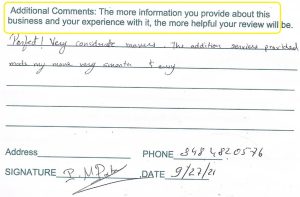 Additional Comments: The more information you provide about this
business and your experience with it, the more helpful your review will be.
Perfect! Very considerate movers. The addition services provided
made my move very smooth + easy
Address PHONE
SIGNATURE DATE 9/27/21